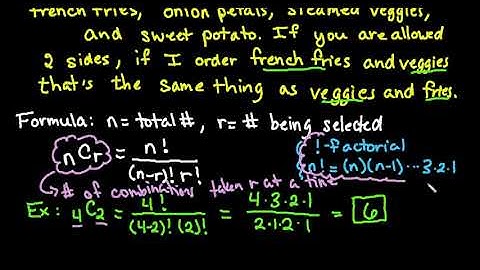 french fries, onion petals, steamed veggies,
and sweet potato. If you are allowed
2 sides, if I order french fries and veggies
that's the same thing as veggies and fries.
Formula: n = total #, r = # being selected
nCr = n! / (n-r)! r!
! - factorial
n! = (n)(n-1) ··· 3·2·1
# of combinations taken r at a time
Ex: 4C2 = 4! / (4-2)! (2)! = 4·3·2·1 / 2·1·2·1 = 6